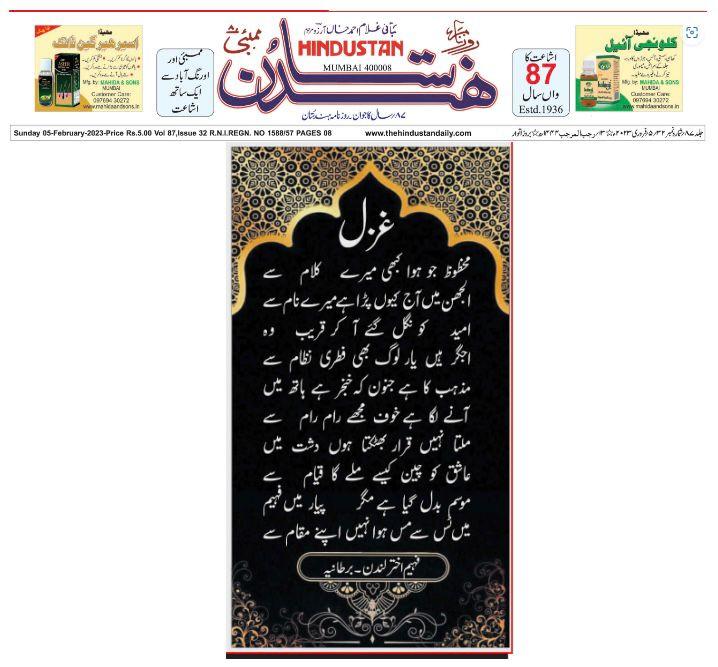 مہیڈا
اسیر ہیر گین ٹانک
Mfg. by: MAHIDA & SONS
MUMBAI
Customer Care:
097694 30272
www.mahidaandsons.in
ممبئی اور
اورنگ آباد سے
ایک ساتھ
اشاعت
بانی غلام احمد خاں آرزو مرحوم
روزنامہ
ممبئی ۸
HINDUSTAN
MUMBAI 400008
ہندستان
۸۷ سال کا جوان۔ روزنامہ ہندستان
اشاعت کا
87
واں سال
Estd.1936
مہیڈا
کلونجی آئیل
Mfg. by: MAHIDA & SONS
MUMBAI
Customer Care:
097694 30272
www.mahidaandsons.in
Sunday 05-February-2023-Price Rs.5.00 Vol 87,Issue 32 R.N.I.REGN. NO 1588/57 PAGES 08
www.thehindustandaily.com
جلد ۸۷؍ شمارہ نمبر ۳۲؍ ۵؍ فروری ۲۰۲۳ء ۱۳؍ رجب المرجب ۱۴۴۴ھ بروز اتوار
غزل
محظوظ جو ہوا کبھی میرے کلام سے
الجھن میں آج کیوں پڑا ہے میرے نام سے
امید کو نگل گئے آ کر قریب وہ
اجگر ہیں یار لوگ بھی فطری نظام سے
مذہب کا ہے جنون کہ خنجر ہے ہاتھ میں
آنے لگا ہے خوف مجھے رام رام سے
ملتا نہیں قرار بھٹکتا ہوں دشت میں
عاشق کو چین کیسے ملے گا قیام سے
موسم بدل گیا ہے مگر پیار میں فہیم
میں ٹس سے مس ہوا نہیں اپنے مقام سے
فہیم اختر لندن۔ برطانیہ